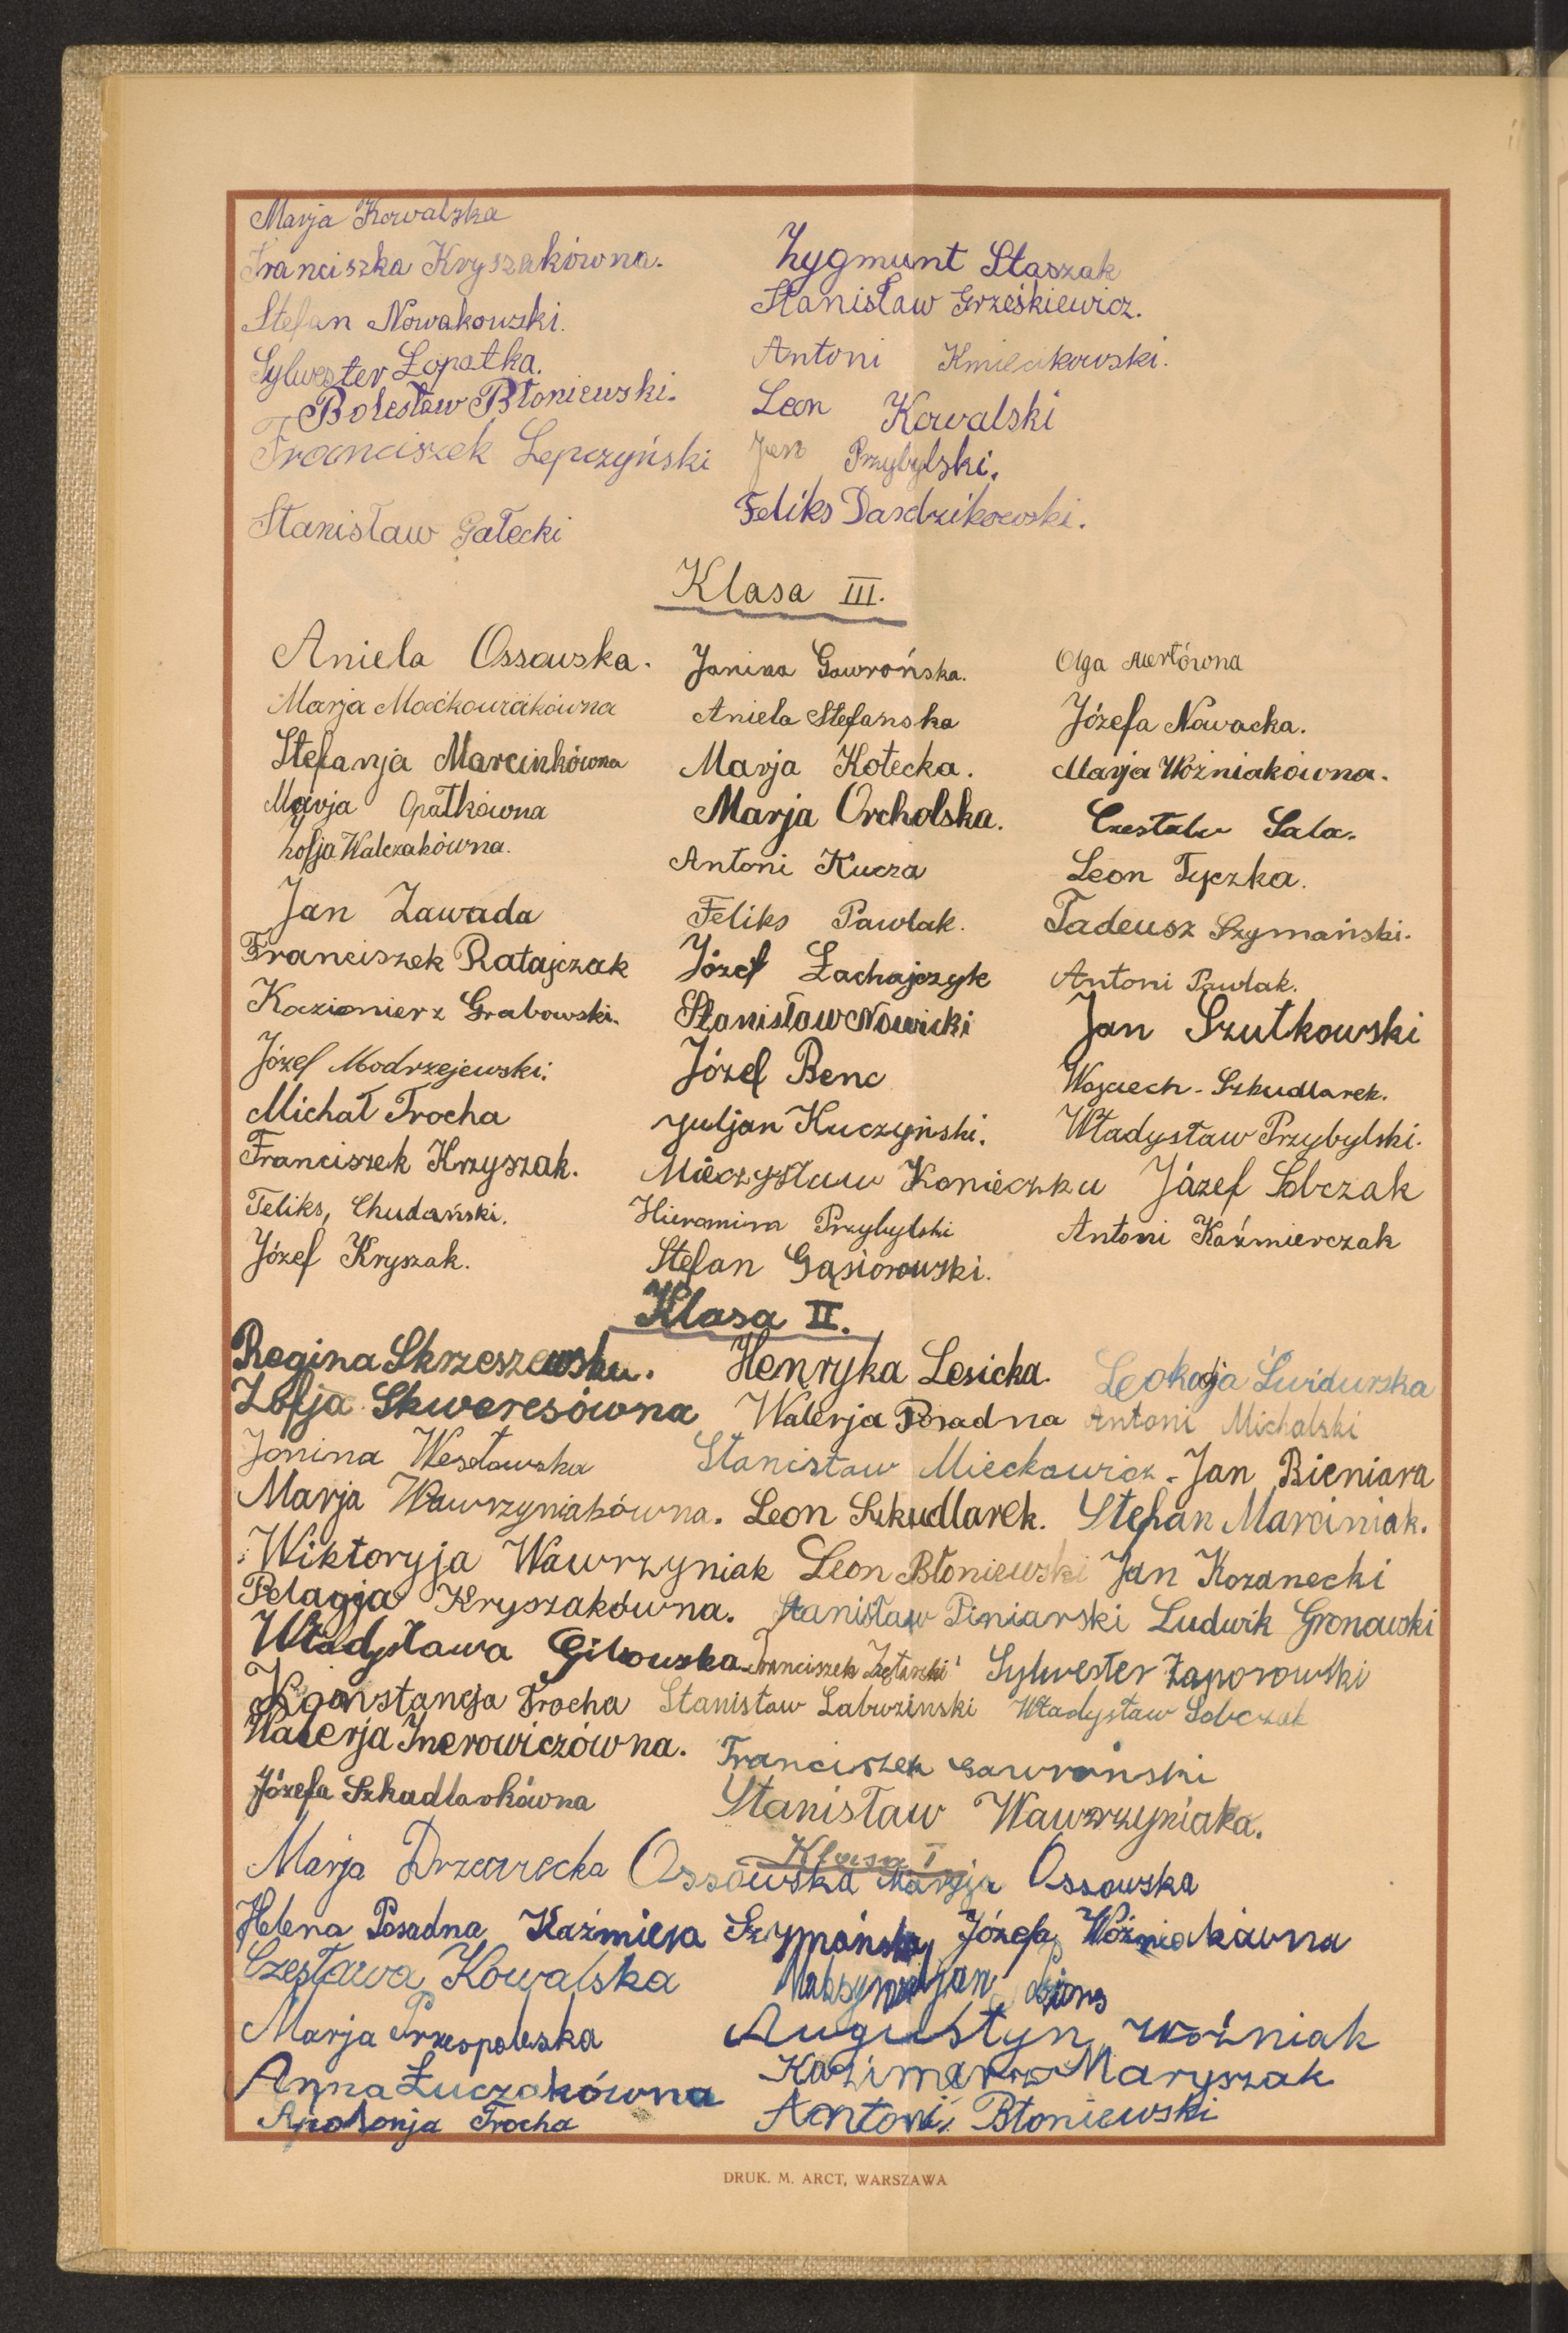 Marja Kowalska
Franciszka Kryszakówna.
Stefan Nowakowski.
Sylwester Łopatka.
Bolesław Błoniewski.
Franciszek Lepczyński
Stanisław Gałecki
Zygmunt Staszak
Stanisław Grześkiewicz.
Antoni Kmiecikowski.
Leon Kowalski
Jan Przybylski.
Feliks Dardzikowski.
Klasa III.
Aniela Ossowska.
Marja Maćkowiakówna
Stefanja Marcinkówna
Marja Opatkówna
Zofja Walczakówna.
Jan Zawada
Franciszek Ratajczak
Kazimierz Grabowski.
Józef Modrzejewski.
Michał Trocha
Franciszek Krzyszak.
Feliks, Chudański.
Józef Kryszak.
Janina Gawrońska.
Aniela Stefanska
Marja Kołecka.
Marja Orcholska.
Antoni Kucza
Feliks Pawlak.
Józef Łachajczyk
Stanisław Nowicki
Józef Benc
Juljan Kuczyński.
Mieczysław Konieczka
Hieronim Przybylski
Stefan Gąsiorowski.
Olga Mertówna
Józefa Nowacka.
Marja Woźniakówna.
Czesław Sala.
Leon Tyczka.
Tadeusz Szymański.
Antoni Pawlak.
Jan Szutkowski
Wojciech - Szkudlarek.
Władysław Przybylski.
Józef Sobczak
Antoni Kaźmierczak
Klasa II.
Regina Skrzeszewska. Henryka Lesicka. Leokadja Świdurska
Zofja Skweresówna Walerja Posadna Antoni Michalski
Janina Wesołowska Stanisław Mieckowicz. Jan Bieniara
Marja Wawrzyniakówna. Leon Szkudlarek. Stefan Marciniak.
Wiktoryja Wawrzyniak Leon Błoniewski Jan Kozanecki
Pelagja Kryszakówna. Stanisław Piniarski Ludwik Gronowski
Władysława Franciszek Sylwester Zaporowski
Konstancja Trocha Stanisław Labuzinski Władysław Sobczak
Walerja Inerowiczówna. Franciszek Gawroński
Józefa Szkudlarkówna Stanisław Wawrzyniaka.
Klasa I
Marja Drzewiecka Ossowska Marja Ossowska
Helena Posadna Kaźmiera Szymańska Józefa Woźniakówna
Czesława Kowalska Maksymiljan
Marja Przespolewska Augustyn Woźniak
Anna Łuczakówna Kazimierz Maryszak
Apolonja Trocha Antoni Błoniewski
DRUK. M. ARCT, WARSZAWA